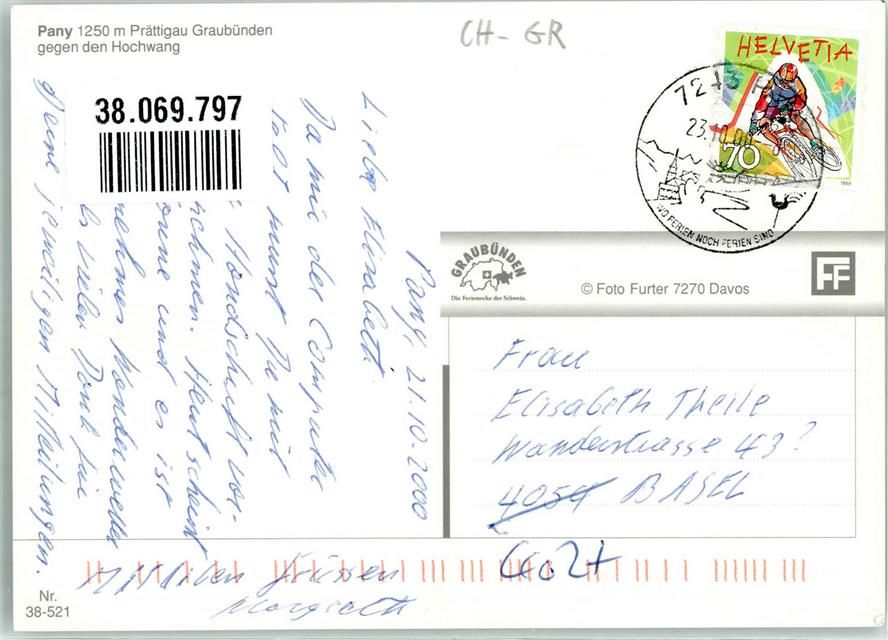 Pany 1250 m Prättigau Graubünden
gegen den Hochwang
CH-GR
HELVETIA
70
1998
7243
23.10.00
WO FERIEN NOCH FERIEN SIND
38.069.797
GRAUBÜNDEN
Die Ferienecke der Schweiz.
© Foto Furter 7270 Davos
FF
Pany, 21.10.2000
Liebe Elisabeth
Da mir der Computer
musst Du mit
Handschrift vor-
nehmen. Heut scheint
onne und es ist
nehmes Wanderwetter
vielen Dank für
Deine jeweiligen Mitteilungen.
Mit lieben Grüssen
Margreth
Frau
Elisabeth Theile
Wanderstrasse 43?
4054 BASEL
Nr.
38-521